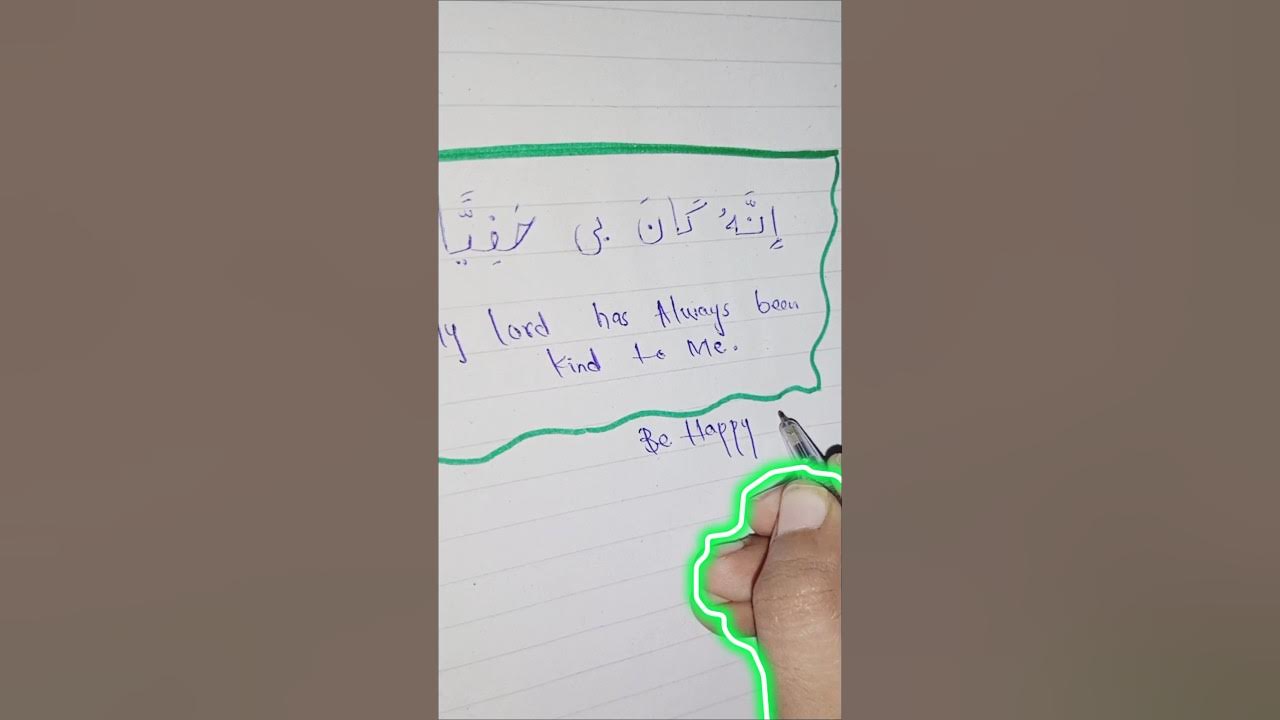 إِنَّهُ كَانَ بى حَفِيًّا
My lord has Always been
kind to Me.
Be Happy